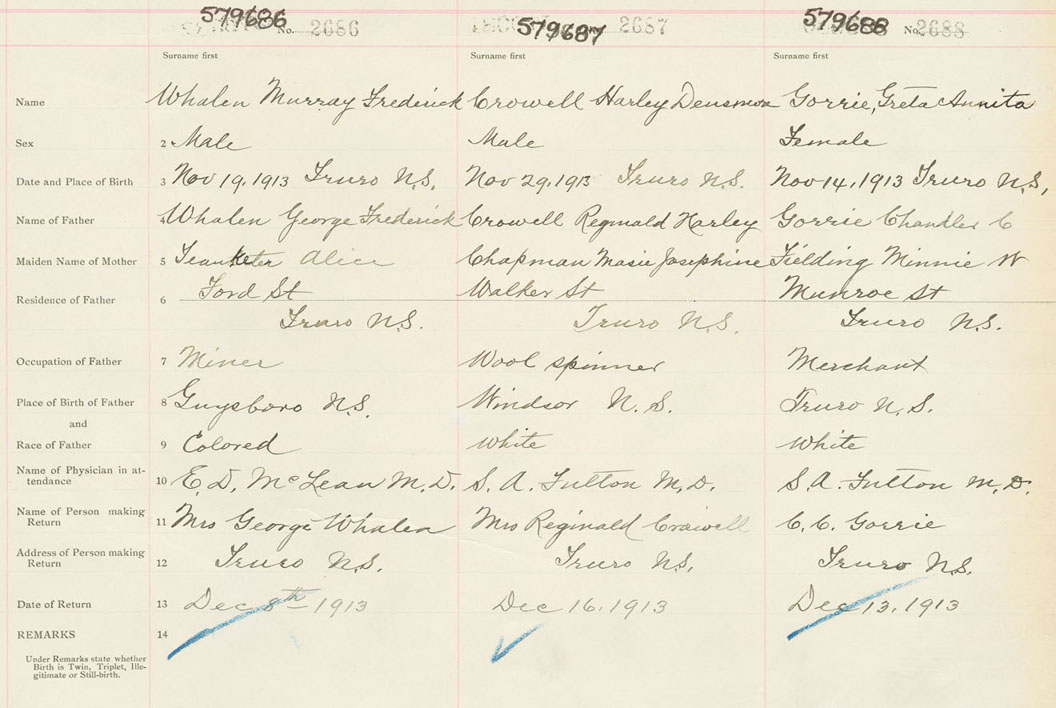 579686 No. 2686 579687 2687 579688 No. 2688
Surname first Surname first Surname first
Name Whalen Murray Frederick Crowell Harley Densmore Gorrie, Greta Annita
Sex 2 Male Male Female
Date and Place of Birth 3 Nov 19, 1913 Truro N.S. Nov 29, 1913 Truro N.S. Nov 14, 1913 Truro N.S.,
Name of Father 4 Whalen George Frederick Crowell Reginald Harley Gorrie Chandler C
Maiden Name of Mother 5 Alice Chapman Masie Josephine Fielding Minnie W
Residence of Father 6 Ford St Walker St Munroe St
Truro N.S. Truro N.S. Truro N.S.
Occupation of Father 7 Miner Wool spinner Merchant
Place of Birth of Father 8 Guysboro N.S. Windsor N.S. Truro N.S.
and
Race of Father 9 Colored White White
Name of Physician in at-
tendance 10 E. D. McLean M.D. S. A. Fulton M.D. S. A. Fulton M.D.
Name of Person making
Return 11 Mrs George Whalen Mrs Reginald Crowell C. C. Gorrie
Address of Person making
Return 12 Truro N.S. Truro N.S. Truro N.S.
Date of Return 13 Dec 8th 1913 Dec 16, 1913 Dec 13, 1913
REMARKS 14
Under Remarks state whether
Birth is Twin, Triplet, Ille-
gitimate or Still-birth.